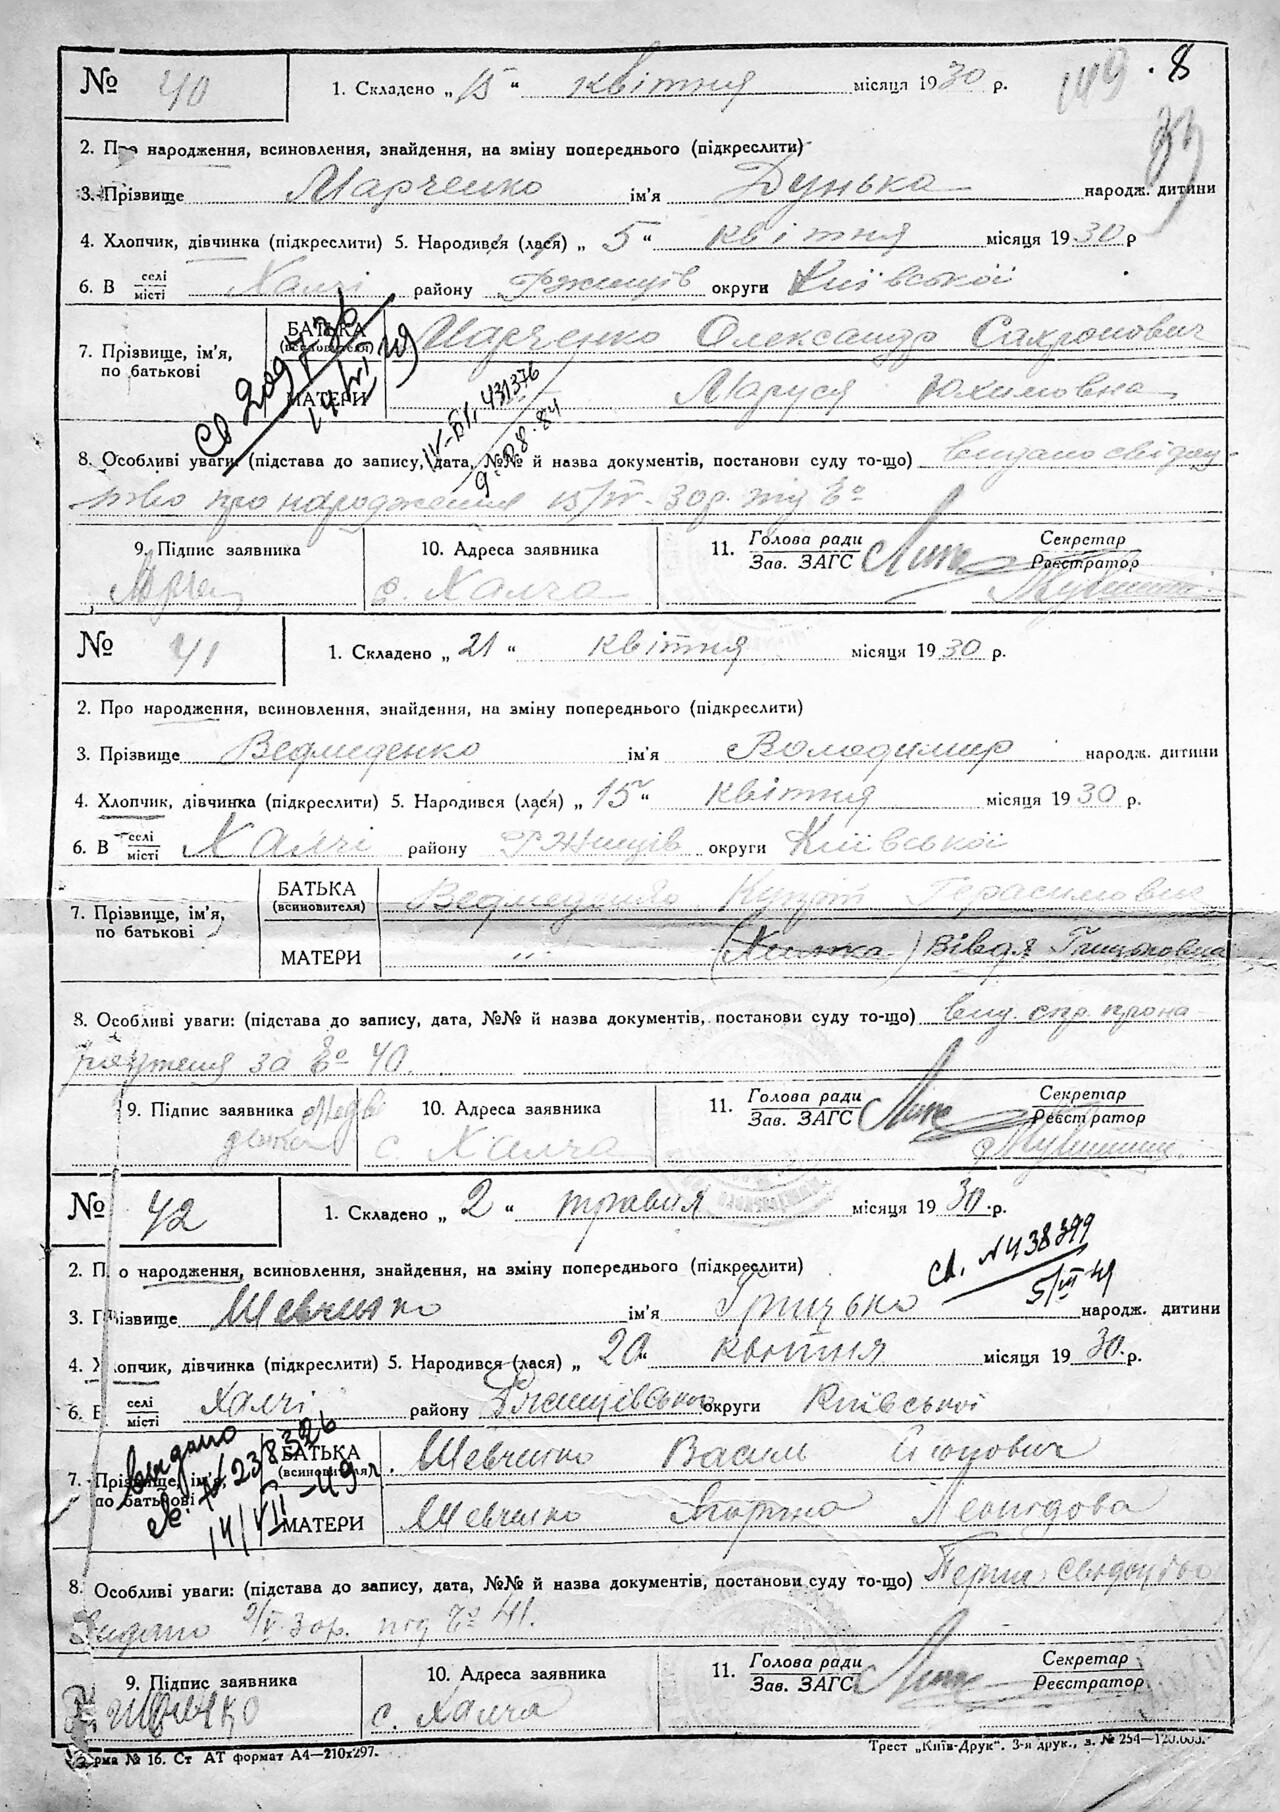 149 · 8
33
№ 40 1. Складено „ 15 “ квітня місяця 1930 р.
2. Про народження, всиновлення, знайдення, на зміну попереднього (підкреслити)
3. Прізвище Марченко ім'я Дунька народж. дитини
4. Хлопчик, дівчинка (підкреслити) 5. Народився (лася) „ 5 “ квітня місяця 1930 р
6. В селі/місті Халчі району Ржищів округи Київської
7. Прізвище, ім'я, по батькові БАТЬКА (всиновителя) Марченко Олександр Сахронович
МАТЕРИ Маруся Юхимовна
IV-БК 431376
9.08.84
8. Особливі уваги: (підстава до запису, дата, №№ й назва документів, постанови суду то-що) видано свідоц-
тво про народження 15/IV-30р. під №
9. Підпис заявника 10. Адреса заявника 11. Голова ради/Зав. ЗАГС Секретар/Реєстратор
с. Халча
№ 41 1. Складено „ 21 “ квітня місяця 1930 р.
2. Про народження, всиновлення, знайдення, на зміну попереднього (підкреслити)
3. Прізвище Ведмиденко ім'я Володимир народж. дитини
4. Хлопчик, дівчинка (підкреслити) 5. Народився (лася) „ 15 “ квітня місяця 1930 р.
6. В селі/місті Халчі району Ржищів округи Київської
7. Прізвище, ім'я, по батькові БАТЬКА (всиновителя) Ведмеденко Герасимович
МАТЕРИ „ (Химка) Вівдя Грицьковна
8. Особливі уваги: (підстава до запису, дата, №№ й назва документів, постанови суду то-що) вид. спр. прона
родження за № 40.
9. Підпис заявника 10. Адреса заявника 11. Голова ради/Зав. ЗАГС Секретар/Реєстратор
с. Халча
№ 42 1. Складено „ 2 “ травня місяця 1930 р.
св. № 438399
5/III 49
2. Про народження, всиновлення, знайдення, на зміну попереднього (підкреслити)
3. Прізвище Шевченко ім'я Грицько народж. дитини
4. Хлопчик, дівчинка (підкреслити) 5. Народився (лася) „ 20 “ квітня місяця 1930 р.
6. В селі/місті Халчі району Ржищівського округи Київської
видано
№ 238326
14/VII-49 г.
7. Прізвище, ім'я, по батькові БАТЬКА (всиновителя) Шевченко Василь
МАТЕРИ Шевченко Леонідова
8. Особливі уваги: (підстава до запису, дата, №№ й назва документів, постанови суду то-що) Перше свідоцтво
Видано 2/V 30р. під № 41.
9. Підпис заявника 10. Адреса заявника 11. Голова ради/Зав. ЗАГС Секретар/Реєстратор
с. Халча
Форма № 16. Ст АТ формат А4—210х297. Трест „Київ-Друк“. 3-я друк., з. № 254—120.000.